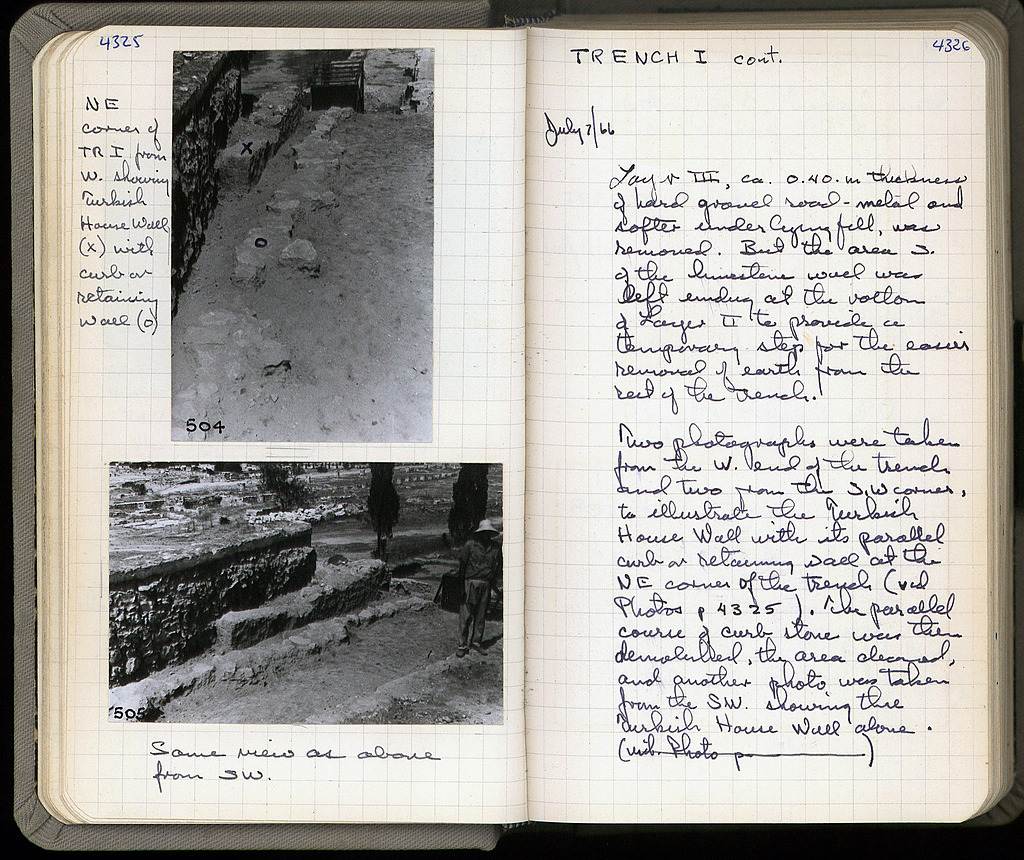 4325
NE
corner of
TR I from
W. showing
Turkish
House Wall
(x) with
curb or
retaining
wall (o)
x
o
504
505
Same view as above
from SW.
4326
TRENCH I cont.
July 7/66
Layer III, ca. 0.40. m thickness
of hard gravel road-metal and
softer underlying fill, was
removed. But the area S.
of the limestone wall was
left ending at the bottom
of Layer II to provide a
temporary step for the easier
removal of earth from the
rest of the trench.
Two photographs were taken
from the W. end of the trench
and two from the S.W corner,
to illustrate the Turkish
House Wall with its parallel
curb or retaining wall at the
NE corner of the trench (vid
Photos p 4325 ). The parallel
course of curb stone was then
demolished, the area cleaned,
and another photo was taken
from the SW. showing the
Turkish House Wall alone.
(vid. Photo p )